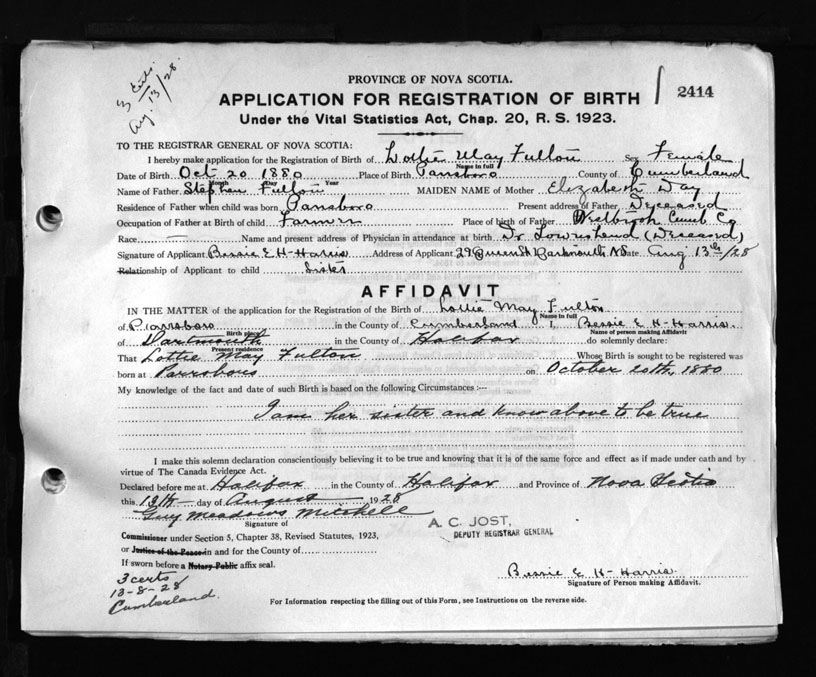 3 Certs.
Aug. 13/28.
PROVINCE OF NOVA SCOTIA.
APPLICATION FOR REGISTRATION OF BIRTH
2414
Under the Vital Statistics Act, Chap. 20, R. S. 1923.
TO THE REGISTRAR GENERAL OF NOVA SCOTIA:
I hereby make application for the Registration of Birth of Lottie May Fulton Sex Female
Name in full
Date of Birth Oct 20 1880 Place of Birth Parrsboro County of Cumberland
Month Day Year
Name of Father Stephen Fulton MAIDEN NAME of Mother Elizabeth Day
Residence of Father when child was born Parrsboro Present address of Father Deceased
Occupation of Father at Birth of child Farmer Place of birth of Father Westbrook Cumb. Co
Race Name and present address of Physician in attendance at birth Dr Townshend (Deceased)
Signature of Applicant Bessie E H-Harris Address of Applicant 29 Queen St Dartmouth NS Date Aug 13th/28
Relationship of Applicant to child Sister
AFFIDAVIT
IN THE MATTER of the application for the Registration of the Birth of Lottie May Fulton
Name in full
of Parrsboro in the County of Cumberland I, Bessie E H-Harris.
Birth place Name of person making Affidavit
of Dartmouth in the County of Halifax do solemnly declare:
Present residence
That Lottie May Fulton Whose Birth is sought to be registered was
born at Parrsboro on October 20th, 1880
My knowledge of the fact and date of such Birth is based on the following Circumstances :—
I am her sister and know above to be true
I make this solemn declaration conscientiously believing it to be true and knowing that it is of the same force and effect as if made under oath and by
virtue of The Canada Evidence Act.
Declared before me at Halifax in the County of Halifax and Province of Nova Scotia
this 13th day of August 1928
Guy Meadows Mitchell
Signature of
A. C. JOST,
DEPUTY REGISTRAR GENERAL
Commissioner under Section 5, Chapter 38, Revised Statutes, 1923,
or Justice of the Peace in and for the County of
If sworn before a Notary Public affix seal.
Bessie E H-Harris.
Signature of Person making Affidavit.
3 certs
13-8-28
Cumberland.
For Information respecting the filling out of this Form, see Instructions on the reverse side.